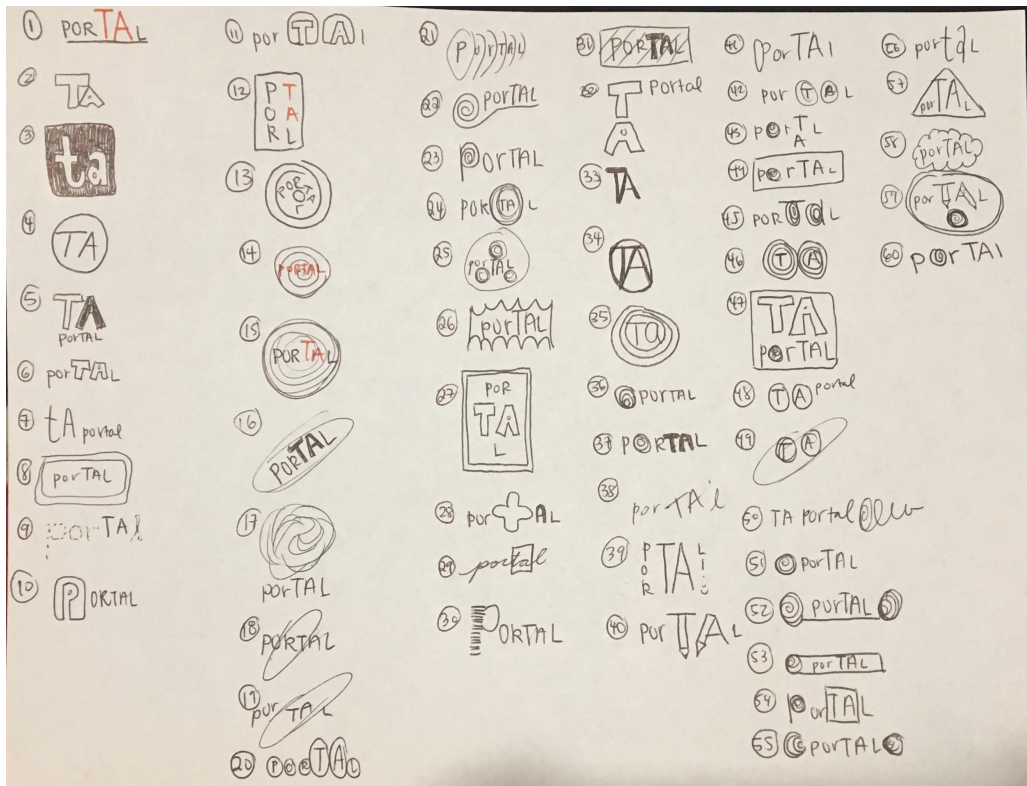 1 PORTAL
2 TA
3 ta
4 TA
5 TA
PORTAL
6 porTAL
7 tA portal
8 porTAL
9 porTAl
10 PORTAL
11 porTAl
12 P T
O A
R L
13 PORTAL
14 PORTAL
15 PORTAL
16 PORTAL
17
porTAL
18 PORTAL
19 porTAL
20 PorTAL
21 PorTAL
22 PORTAL
23 PorTAL
24 PORTAL
25 PorTAL
26 porTAL
27 POR
TA
L
28 por AL
29 portal
30 PORTAL
31 PORTAL
32 T Portal
A
33 TA
34 TA
35 TA
36 PORTAL
37 PORTAL
38 porTAl
39 P TA L
O
R
40 porTAL
41 porTAl
42 porTAL
43 PorTL
A
44 PorTAL
45 PORTaL
46 TA
47 TA
PorTAL
48 TA portal
49 TA
50 TA Portal
51 porTAL
52 porTAL
53 porTAL
54 porTAL
55 PorTAL
56 portaL
57 porTAL
58 porTAL
59 porTAL
60 porTAl